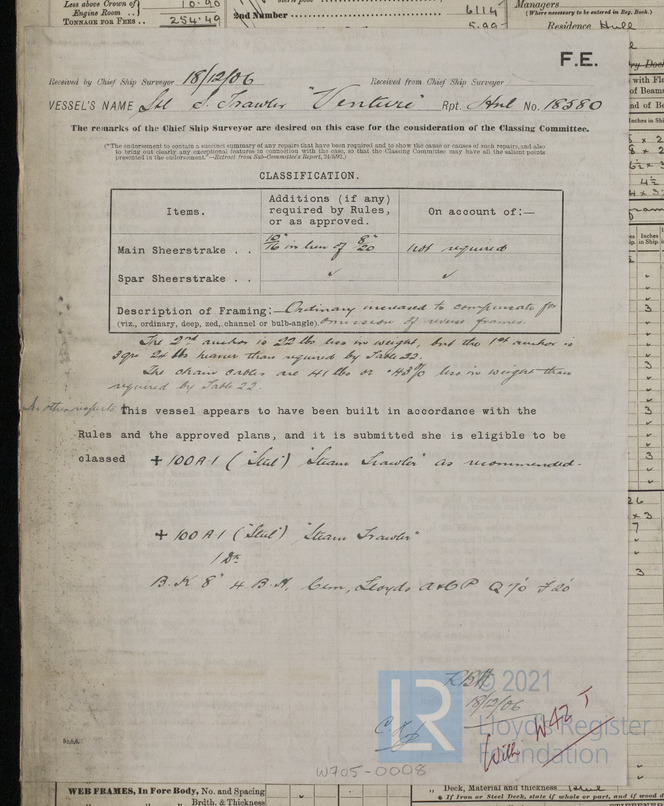 Less above Crown of Engine Room .. 10.90
Tonnage for Fees .. 254.49
2nd Number 6114
5.99
Managers
(Where necessary to be entered in Reg. Book.)
Residence Hull
F.E.
Received by Chief Ship Surveyor 18/12/06 Received from Chief Ship Surveyor
VESSEL'S NAME Stl S. Trawler "Venture" Rpt. Hul No. 18580
The remarks of the Chief Ship Surveyor are desired on this case for the consideration of the Classing Committee.
("The endorsement to contain a succinct summary of any repairs that have been required and to show the cause or causes of such repairs, and also
to bring out clearly any exceptional features in connection with the case, so that the Classing Committee may have all the salient points
presented in the endorsement."—Extract from Sub-Committee's Report,
CLASSIFICATION.
Items. Additions (if any) required by Rules, or as approved. On account of:—
Main Sheerstrake . . 10/16 in lieu of 8/20 Not required
Spar Sheerstrake . . ✓ ✓
Description of Framing:—Ordinary increased to compensate for
(viz., ordinary, deep, zed, channel or bulb-angle). omission of reverse frames.
The 2nd anchor is 22 lbs less in weight, but the 1st anchor is
3 qrs 24 lbs heavier than required by Table 22.
The chain cables are 41 lbs or .43% less in weight than
required by Table 22.
In other respects this vessel appears to have been built in accordance with the
Rules and the approved plans, and it is submitted she is eligible to be
classed + 100 A 1 ("Steel") "Steam Trawler" as recommended.
+ 100 A 1 ("Steel") "Steam Trawler"
1 Dk
B.K 8" 4 B.H, Cem, Lloyds A & C P
18/12/06
With
W705-0008
© 2021
LR
Lloyd's Register
Foundation
WEB FRAMES, In Fore Body, No. and Spacing
Brdth. & Thickness
" Deck, Material and thickness
* If Iron or Steel Deck, state if whole or part, and if wood d